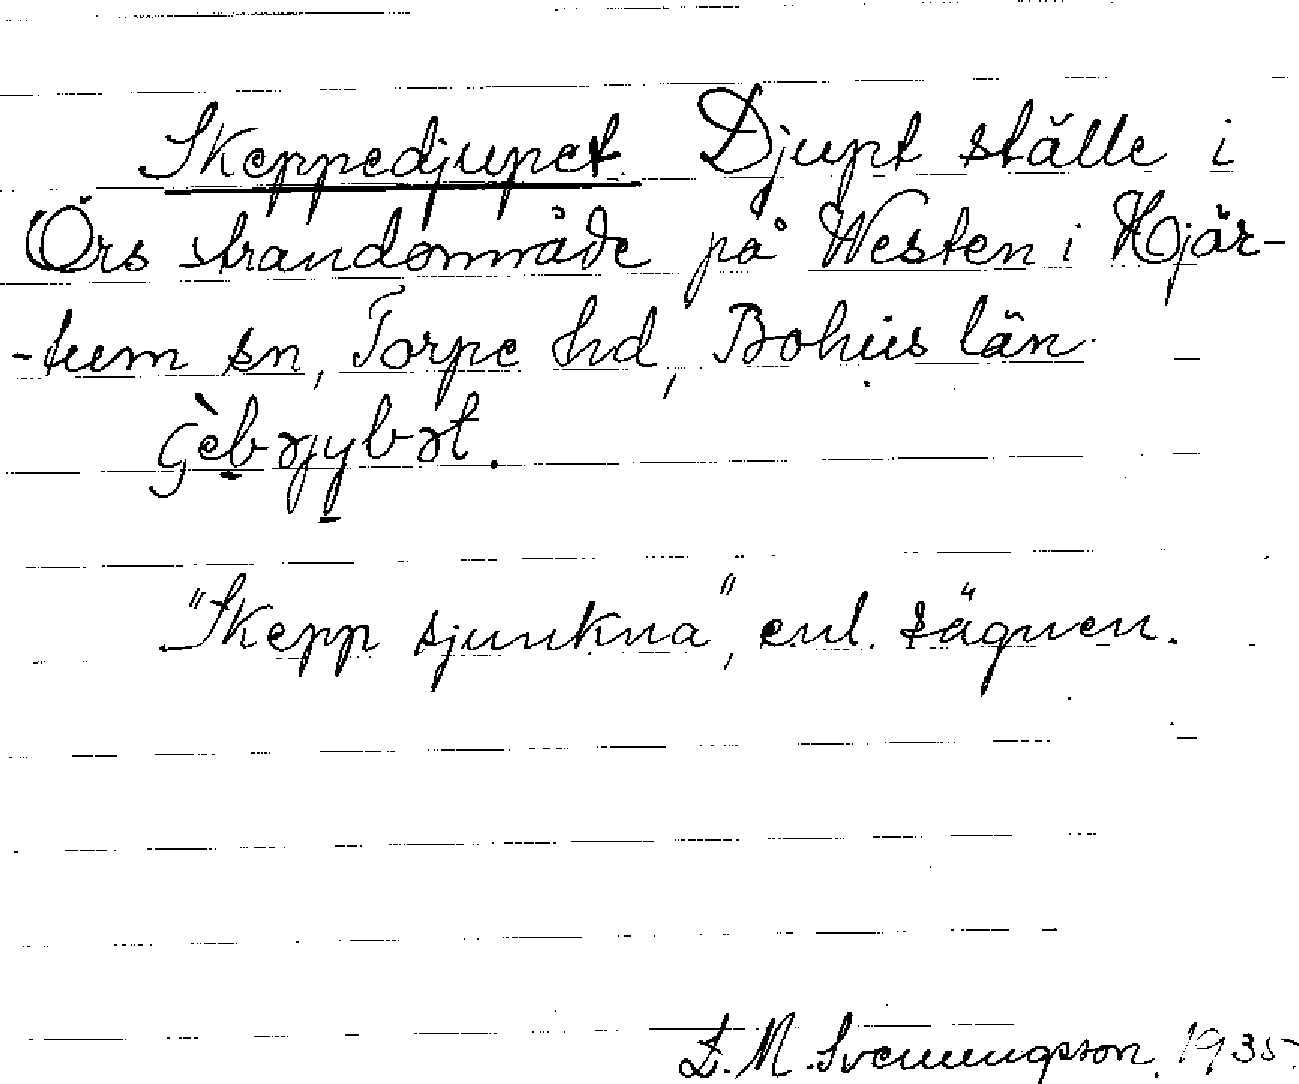 Skeppedjupet. Djupt ställe i
Örs strandområde på Westen i Hjär-
-tum sn, Torpe hd, Bohus län.
"Skepp sjunkna", enl. sägnen.
S. M. Svenungsson. 1935.